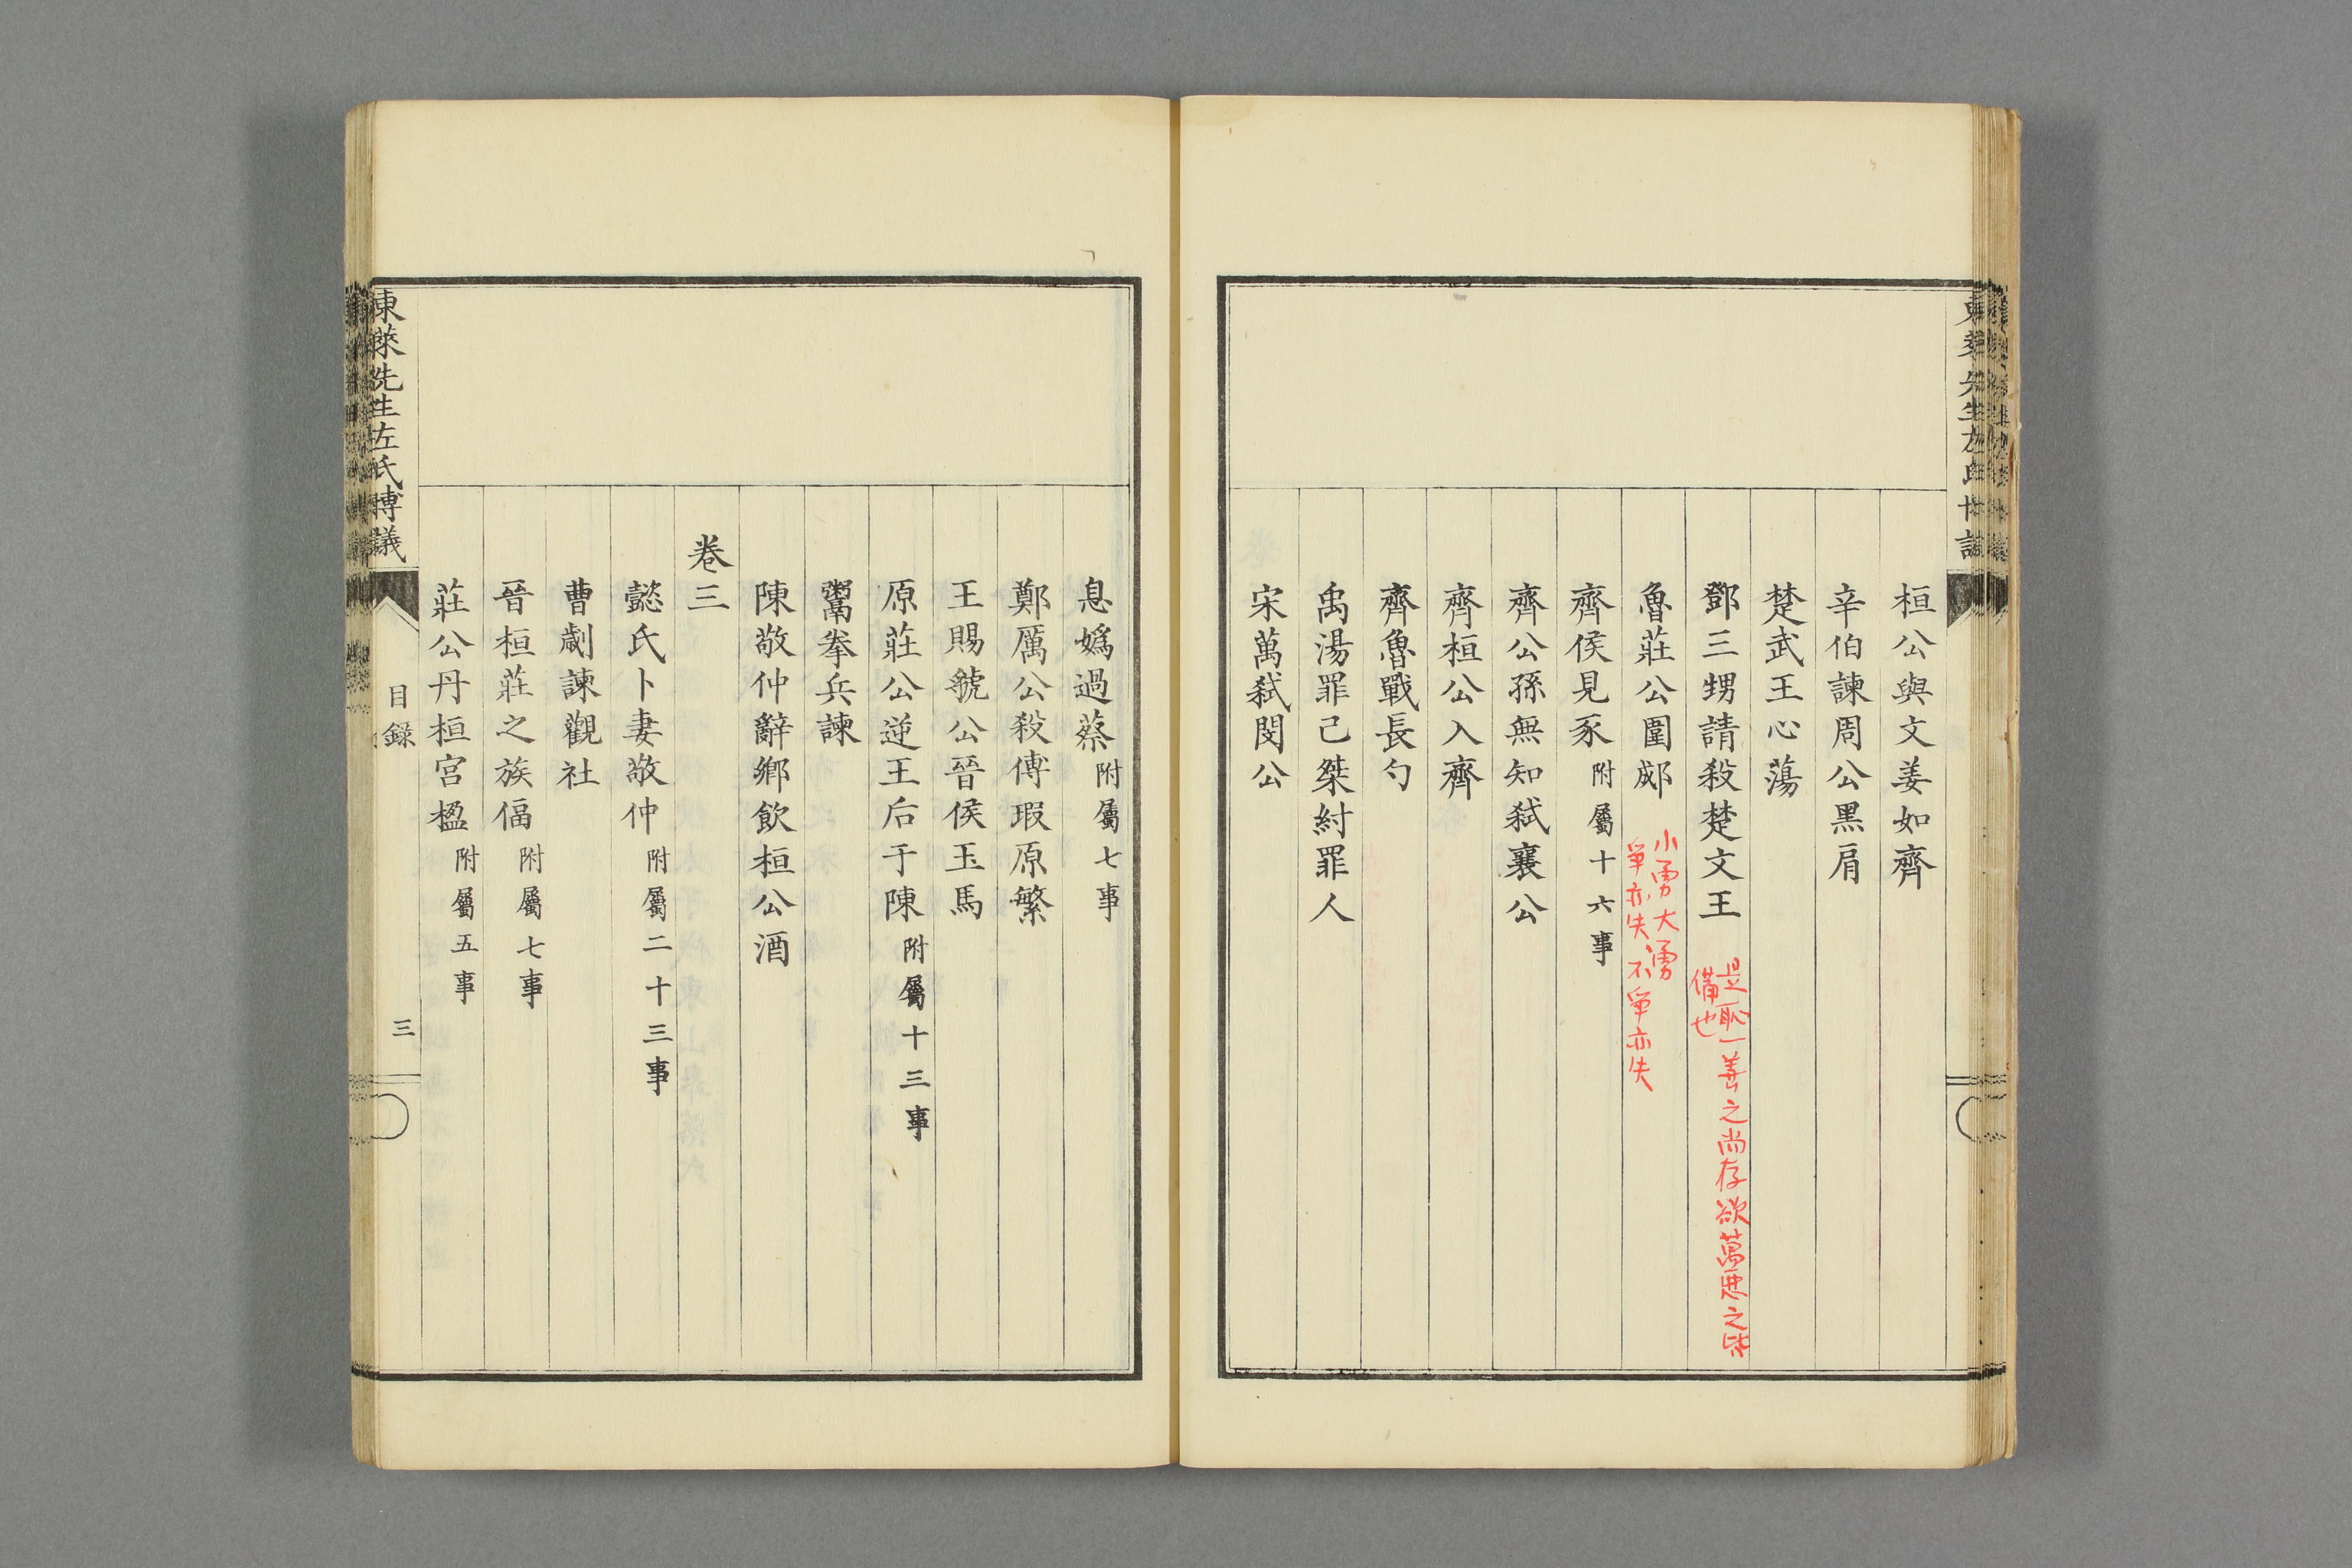 桓公與文姜如齊
辛伯諫周公黑肩
楚武王心蕩
鄧三甥請殺楚文王
是恥一善之尚存欲萬惡之皆
備也
魯莊公圍郕
小勇大勇
爭亦失、不爭亦失
齊侯見豕附屬十六事
齊公孫無知弑襄公
齊桓公入齊
齊魯戰長勺
禹湯罪己桀紂罪人
宋萬弑閔公
息嬀過蔡附屬七事
鄭厲公殺傅瑕原繁
王賜虢公晉侯玉馬
原莊公逆王后于陳附屬十三事
鬻拳兵諫
陳敬仲辭鄉飲桓公酒
卷三
懿氏卜妻敬仲附屬二十三事
曹劌諫觀社
晉桓莊之族偪附屬七事
莊公丹桓宮楹附屬五事
東萊先生左氏博議
目錄
三